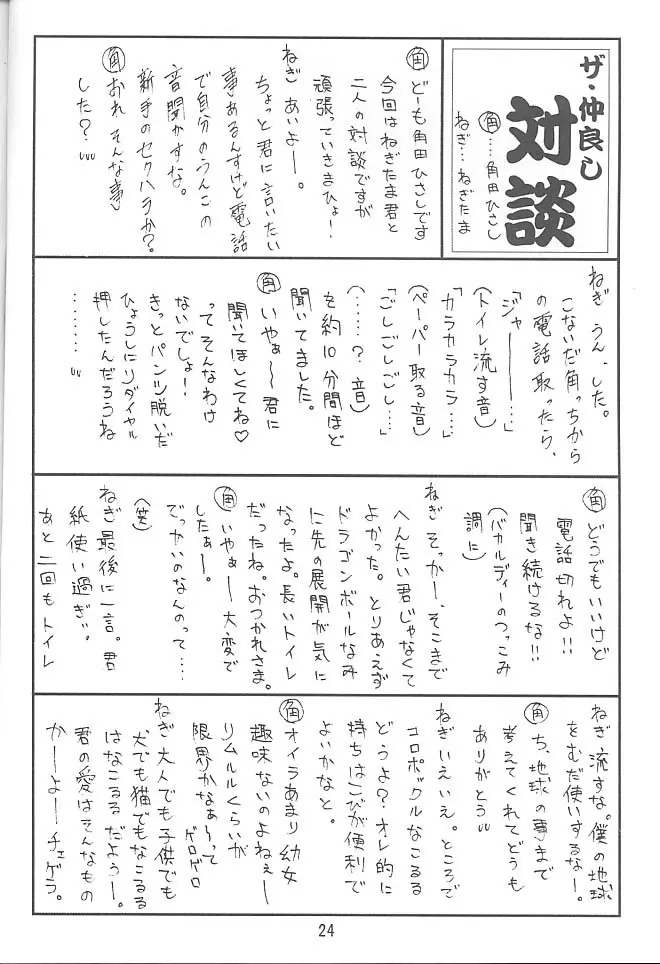 ザ・仲良し
対談
角……角田ひさし
ねぎ…ねぎたま
角 どーも角田ひさしです
今回はねぎたま君と
二人の対談ですが
頑張っていきまひょ!
ねぎ あいよー。
ちょっと君に言いたい
事あるんすけど電話
で自分のうんこの
音聞かすな。
新手のセクハラか?
角 おれそんな事
した?
ねぎ うん、した。
こないだ角っちから
の電話取ったら、
「ジャーーー…」
(トイレ流す音)
「カラカラカラ…」
(ペーパー取る音)
「ごしごしごし…」
(……?音)
を約10分間ほど
聞いてました。
角 いやぁ〜君に
聞いてほしくてね♡
ってそんなわけ
ないでしょ!
きっとパンツ脱いだ
ひょうしにリダイヤル
押したんだろうね
………
角 どうでもいいけど
電話切れよ!!
聞き続けるな!!
(バカルディーのつっこみ
調に)
ねぎ そっかー、そこまで
へんたい君じゃなくて
よかった。とりあえず
ドラゴンボールなみ
に先の展開が気に
なったよ。長いトイレ
だったね。おつかれさま。
角 いやぁー大変で
したぁー。
でっかいのなんのって……
(笑)
ねぎ 最後に一言。君
紙使い過ぎ。
あと二回もトイレ
ねぎ 流すな。僕の地球
をむだ使いするなー。
角 ち、地球の事まで
考えてくれてどうも
ありがとう
ねぎ いえいえ。ところで
コロポックルなこるる
どうよ?オレ的に
持ちはこびが便利で
よいかなと。
角 オイラあまり幼女
趣味ないのよねぇー
リムルルくらいが
限界かなぁ〜って
ゲロゲロ
ねぎ 大人でも子供でも
犬でも猫でもなこるる
はなこるるだよぅー。
君の愛はそんなもの
かーよーチェゲラ。
24